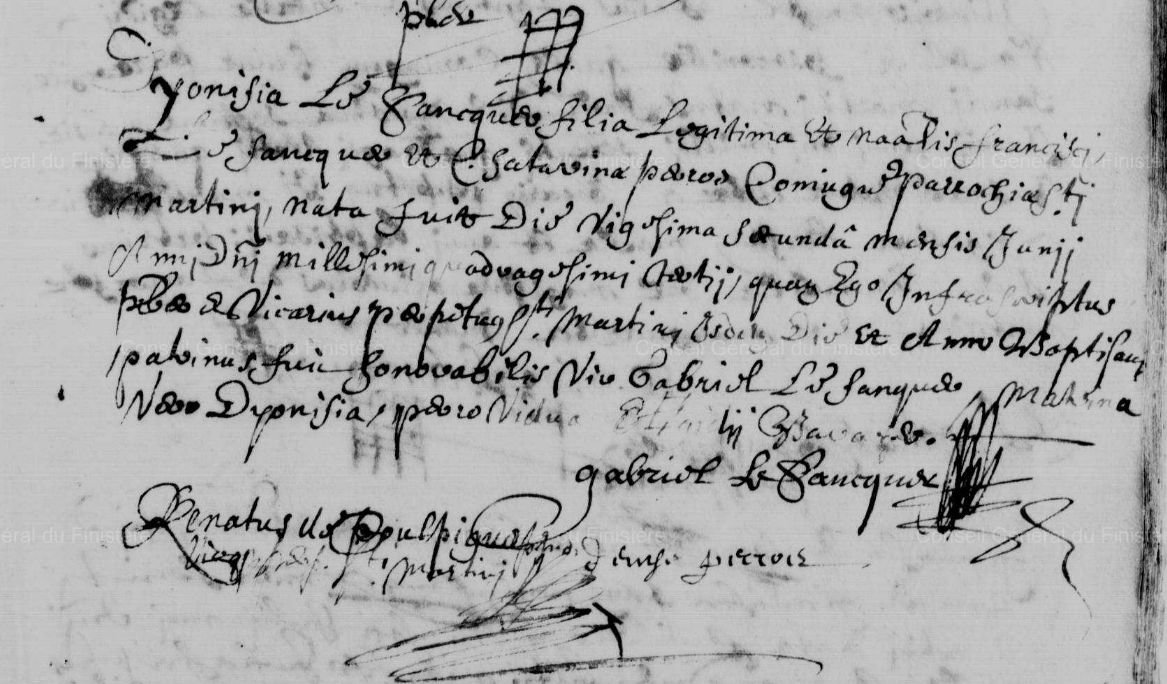 pber
Dyonisia Le Sancquer filia Legitima Et naālis francisci
Le sancquer et Catarinæ perroe Coniugū Parrochiæ Sti
martini, nata fuit Die Vigesima secundâ mensis Junij
Annj Dnj millesimi quadragesimi tertij, quam Ego Infrascriptus
pber et Vicarius perpetuus Sti Martinj Et Anno Baptisauj
patrinus fuit honorabilis Vir Gabriel Le sanquer, Matrina
Vero Dyonisia, perro Vidua
gabriel Le Sancquer
Renatus de Poulpiquet
Sti Martinj denise perroe